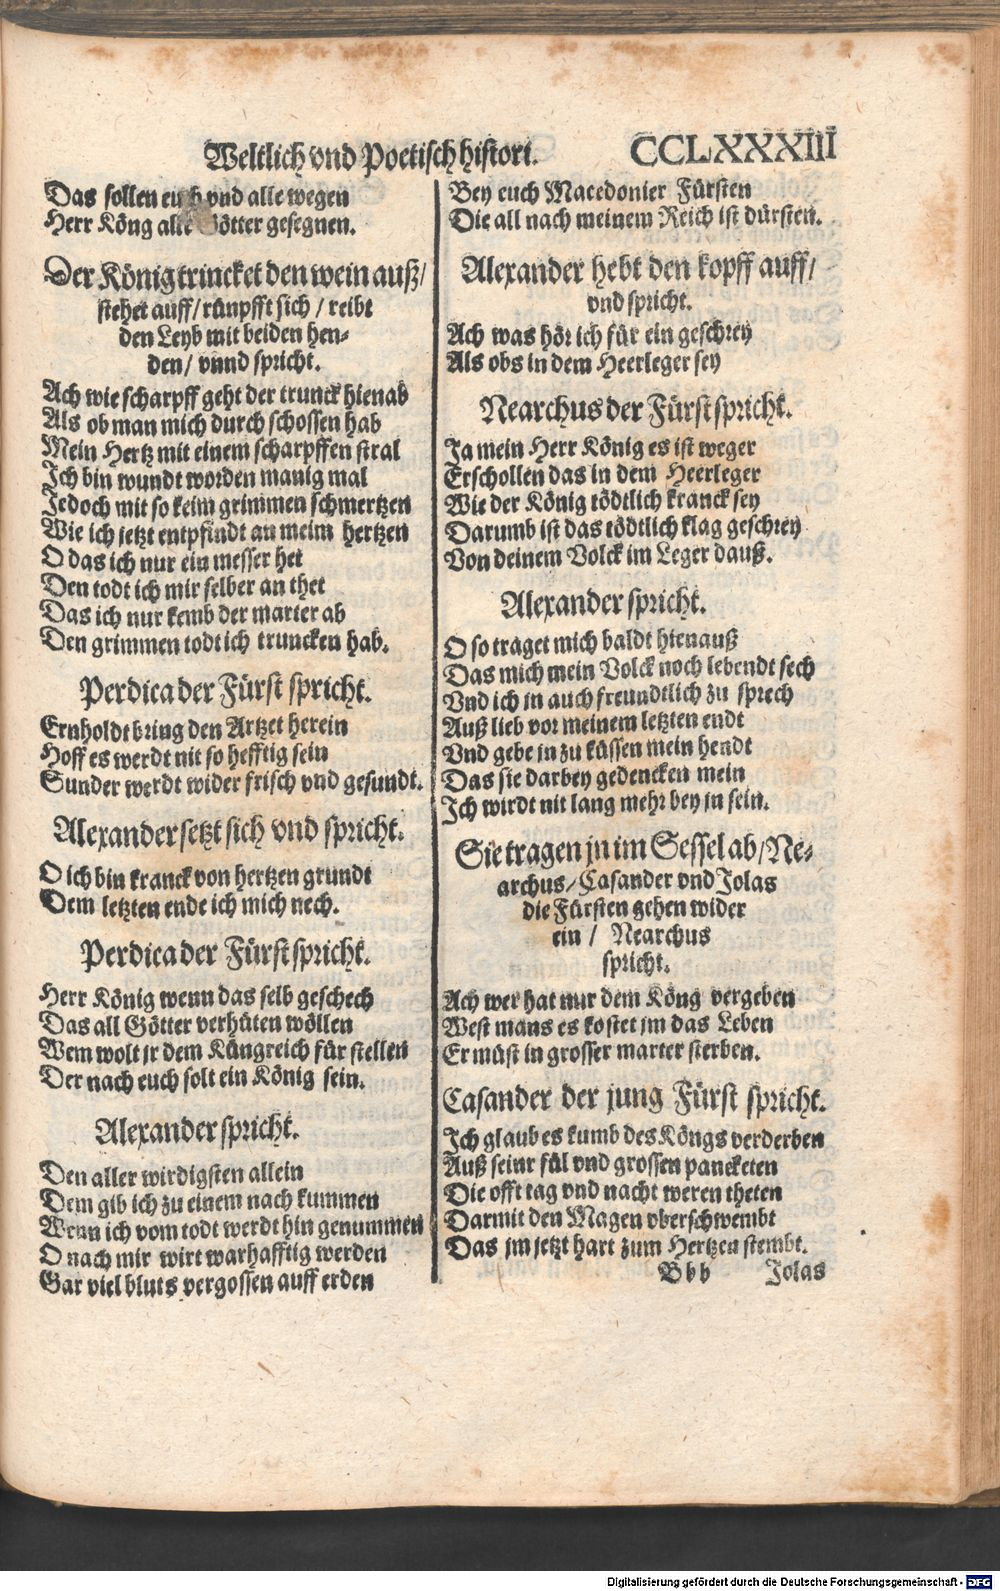 Weltlich vnd Poetisch histori.
CCLXXXIII
Das sollen euch vnd alle wegen
Herr Köng alle Götter gesegnen.
Der König trincket den wein auß/
stehet auff/ rünpfft sich/ reibt
den Leyb mit beiden hen-
den/ vnnd spricht.
Ach wie scharpff geht der trunck hienab
Als ob man mich durch schossen hab
Mein Hertz mit einem scharpffen stral
Ich bin wundt worden manig mal
Jedoch mit so keim grimmen schmertzen
Wie ich jetzt entpfindt an meim hertzen
O das ich nur ein messer het
Den todt ich mir selber an thet
Das ich nur kemb der marter ab
Den grimmen todt ich truncken hab.
Perdica der Fürst spricht.
Ernholdt bring den Artzet herein
Hoff es werdt nit so hefftig sein
Sunder werdt wider frisch vnd gesundt.
Alexander setzt sich vnd spricht.
O ich bin kranck von hertzen grundt
Dem letzten ende ich mich nech.
Perdica der Fürst spricht.
Herr König wenn das selb geschech
Das all Götter verhüten wöllen
Wem wolt jr dem Küngreich für stellen
Der nach euch solt ein König sein.
Alexander spricht.
Den aller wirdigsten allein
Dem gib ich zu einem nach kummen
Wenn ich vom todt werdt hin genummen
O nach mir wirt warhafftig werden
Gar viel bluts vergossen auff erden
Bey euch Macedonier Fürsten
Die all nach meinem Reich ist dürsten.
Alexander hebt den kopff auff/
vnd spricht.
Ach was hör ich für ein geschrey
Als obs in dem Heerleger sey
Nearchus der Fürst spricht.
Ja mein Herr König es ist weger
Erschollen das in dem Heerleger
Wie der König tödtlich kranck sey
Darumb ist das tödtlich klag geschrey
Von deinem Volck im Leger dauß.
Alexander spricht.
O so traget mich baldt hienauß
Das mich mein Volck noch lebendt sech
Vnd ich in auch freundtlich zu sprech
Auß lieb vor meinem letzten endt
Vnd gebe jn zu küssen mein hendt
Das sie darbey gedencken mein
Ich wirdt nit lang mehr bey jn sein.
Sie tragen jn im Sessel ab/ Ne-
archus/ Casander vnd Jolas
die Fürsten gehen wider
ein/ Nearchus
spricht.
Ach wer hat nur dem Köng vergeben
West mans es kostet jm das Leben
Er müst in grosser marter sterben.
Casander der jung Fürst spricht.
Ich glaub es kumb des Köngs verderben
Auß seinr fül vnd grossen pancketen
Die offt tag vnd nacht weren theten
Darmit den Magen vberschwembt
Das jm jetzt hart zum Hertzen stembt.
Bbb Jolas
Digitalisierung gefördert durch die Deutsche Forschungsgemeinschaft - DFG